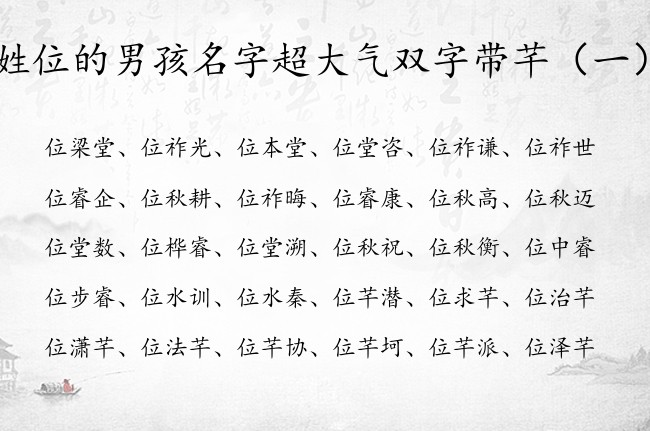 姓位的男孩名字超大气双字带芊（一）
位梁堂、位祚光、位本堂、位堂咨、位祚谦、位祚世
位睿企、位秋耕、位祚晦、位睿康、位秋高、位秋迈
位堂数、位桦睿、位堂溯、位秋祝、位秋衡、位中睿
位步睿、位水训、位水秦、位芊潜、位求芊、位治芊
位潇芊、位法芊、位芊协、位芊坷、位芊派、位泽芊